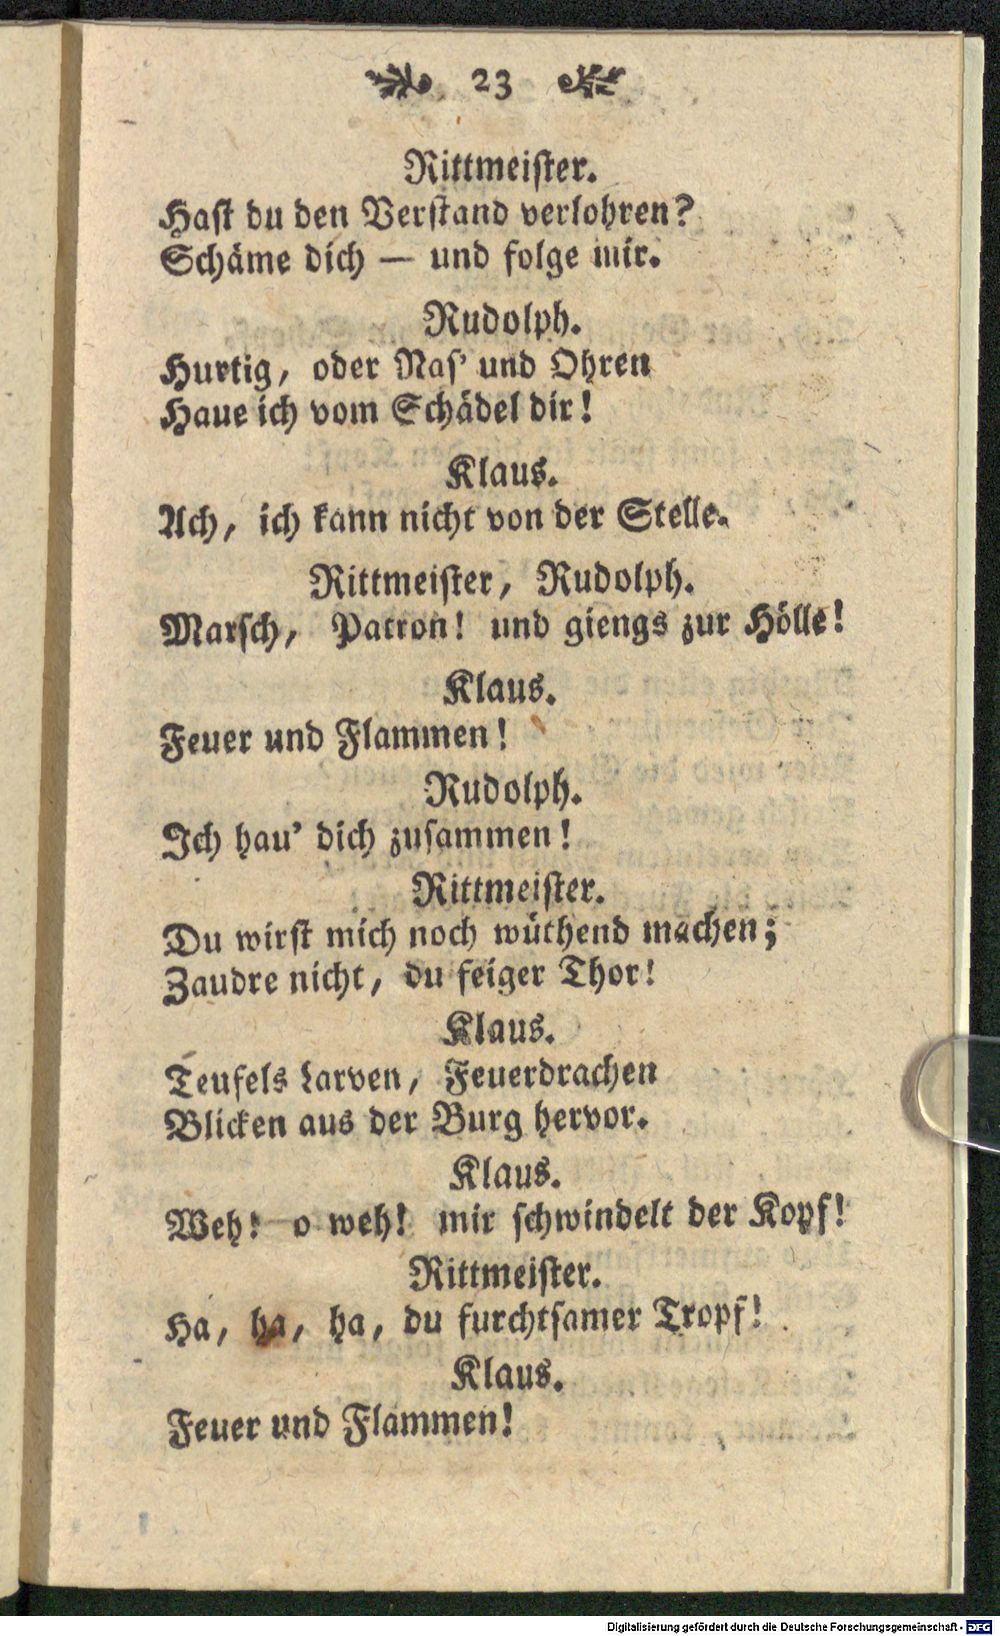 23
Rittmeister.
Hast du den Verstand verlohren?
Schäme dich — und folge mir.
Rudolph.
Hurtig, oder Nas' und Ohren
Haue ich vom Schädel dir!
Klaus.
Ach, ich kann nicht von der Stelle.
Rittmeister, Rudolph.
Marsch, Patron! und giengs zur Hölle!
Klaus.
Feuer und Flammen!
Rudolph.
Ich hau' dich zusammen!
Rittmeister.
Du wirst mich noch wüthend machen;
Zaudre nicht, du feiger Thor!
Klaus.
Teufels Larven, Feuerdrachen
Blicken aus der Burg hervor.
Klaus.
Weh! o weh! mir schwindelt der Kopf!
Rittmeister.
Ha, ha, ha, du furchtsamer Tropf!
Klaus.
Feuer und Flammen!
Digitalisierung gefördert durch die Deutsche Forschungsgemeinschaft - DFG